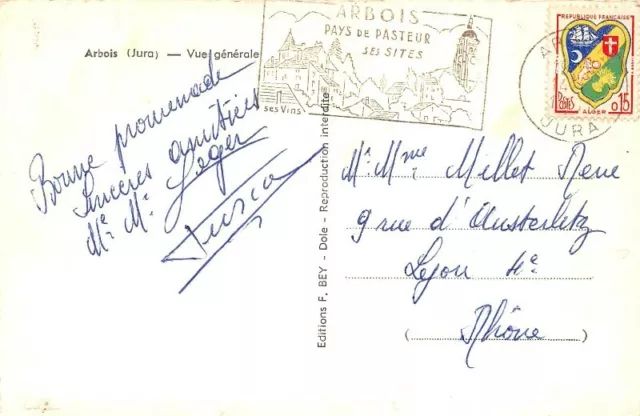 Arbois (Jura) — Vue générale
ARBOIS
PAYS DE PASTEUR
SES SITES
ses Vins
REPUBLIQUE FRANÇAISE
POSTES
0,15
ALGER
JURA
Bonne promenade
Sincères amitiés
Mr. Me. Leger
Editions F. BEY - Dole - Reproduction interdite
Mr. Mme Millet Rene
9 rue d'Austerlitz
Lyon 4e.
( Rhône )